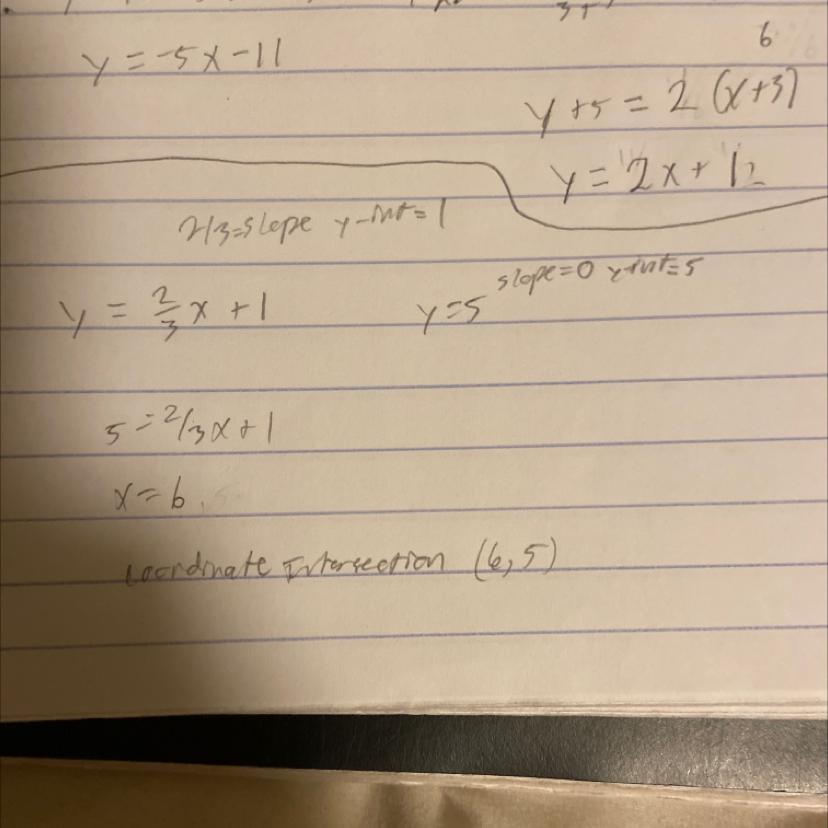 y = -5x - 11
6
y + 5 = 2 (x+3)
y = 2x + 12
2/3=slope y-int=1
slope=0 y-int=5
y = 2/3 x + 1
y=5
5 = 2/3x + 1
x = 6
Coordinate Intersection (6, 5)